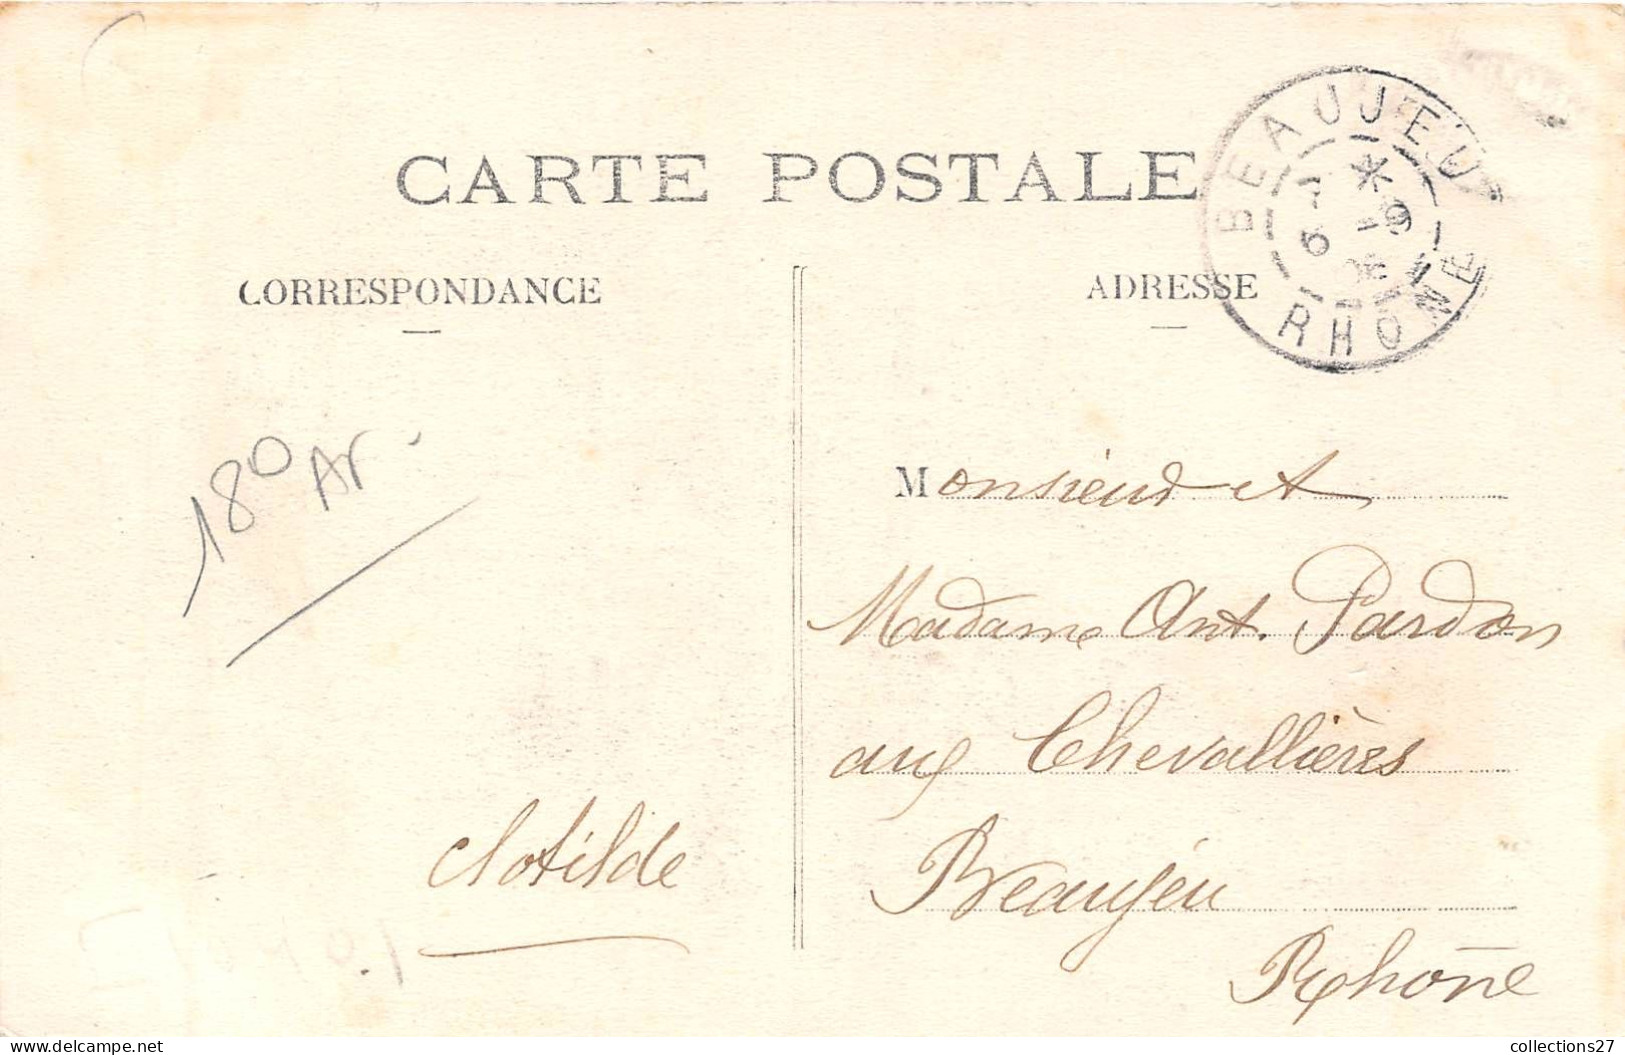 CARTE POSTALE
BEAUJEU
RHONE
CORRESPONDANCE
ADRESSE
180 Ar.
Monsieur et
Madame Ant. Pardon
aux Chevallières
Beaujeu
Rhône
Clotilde
delcampe.net
collections27